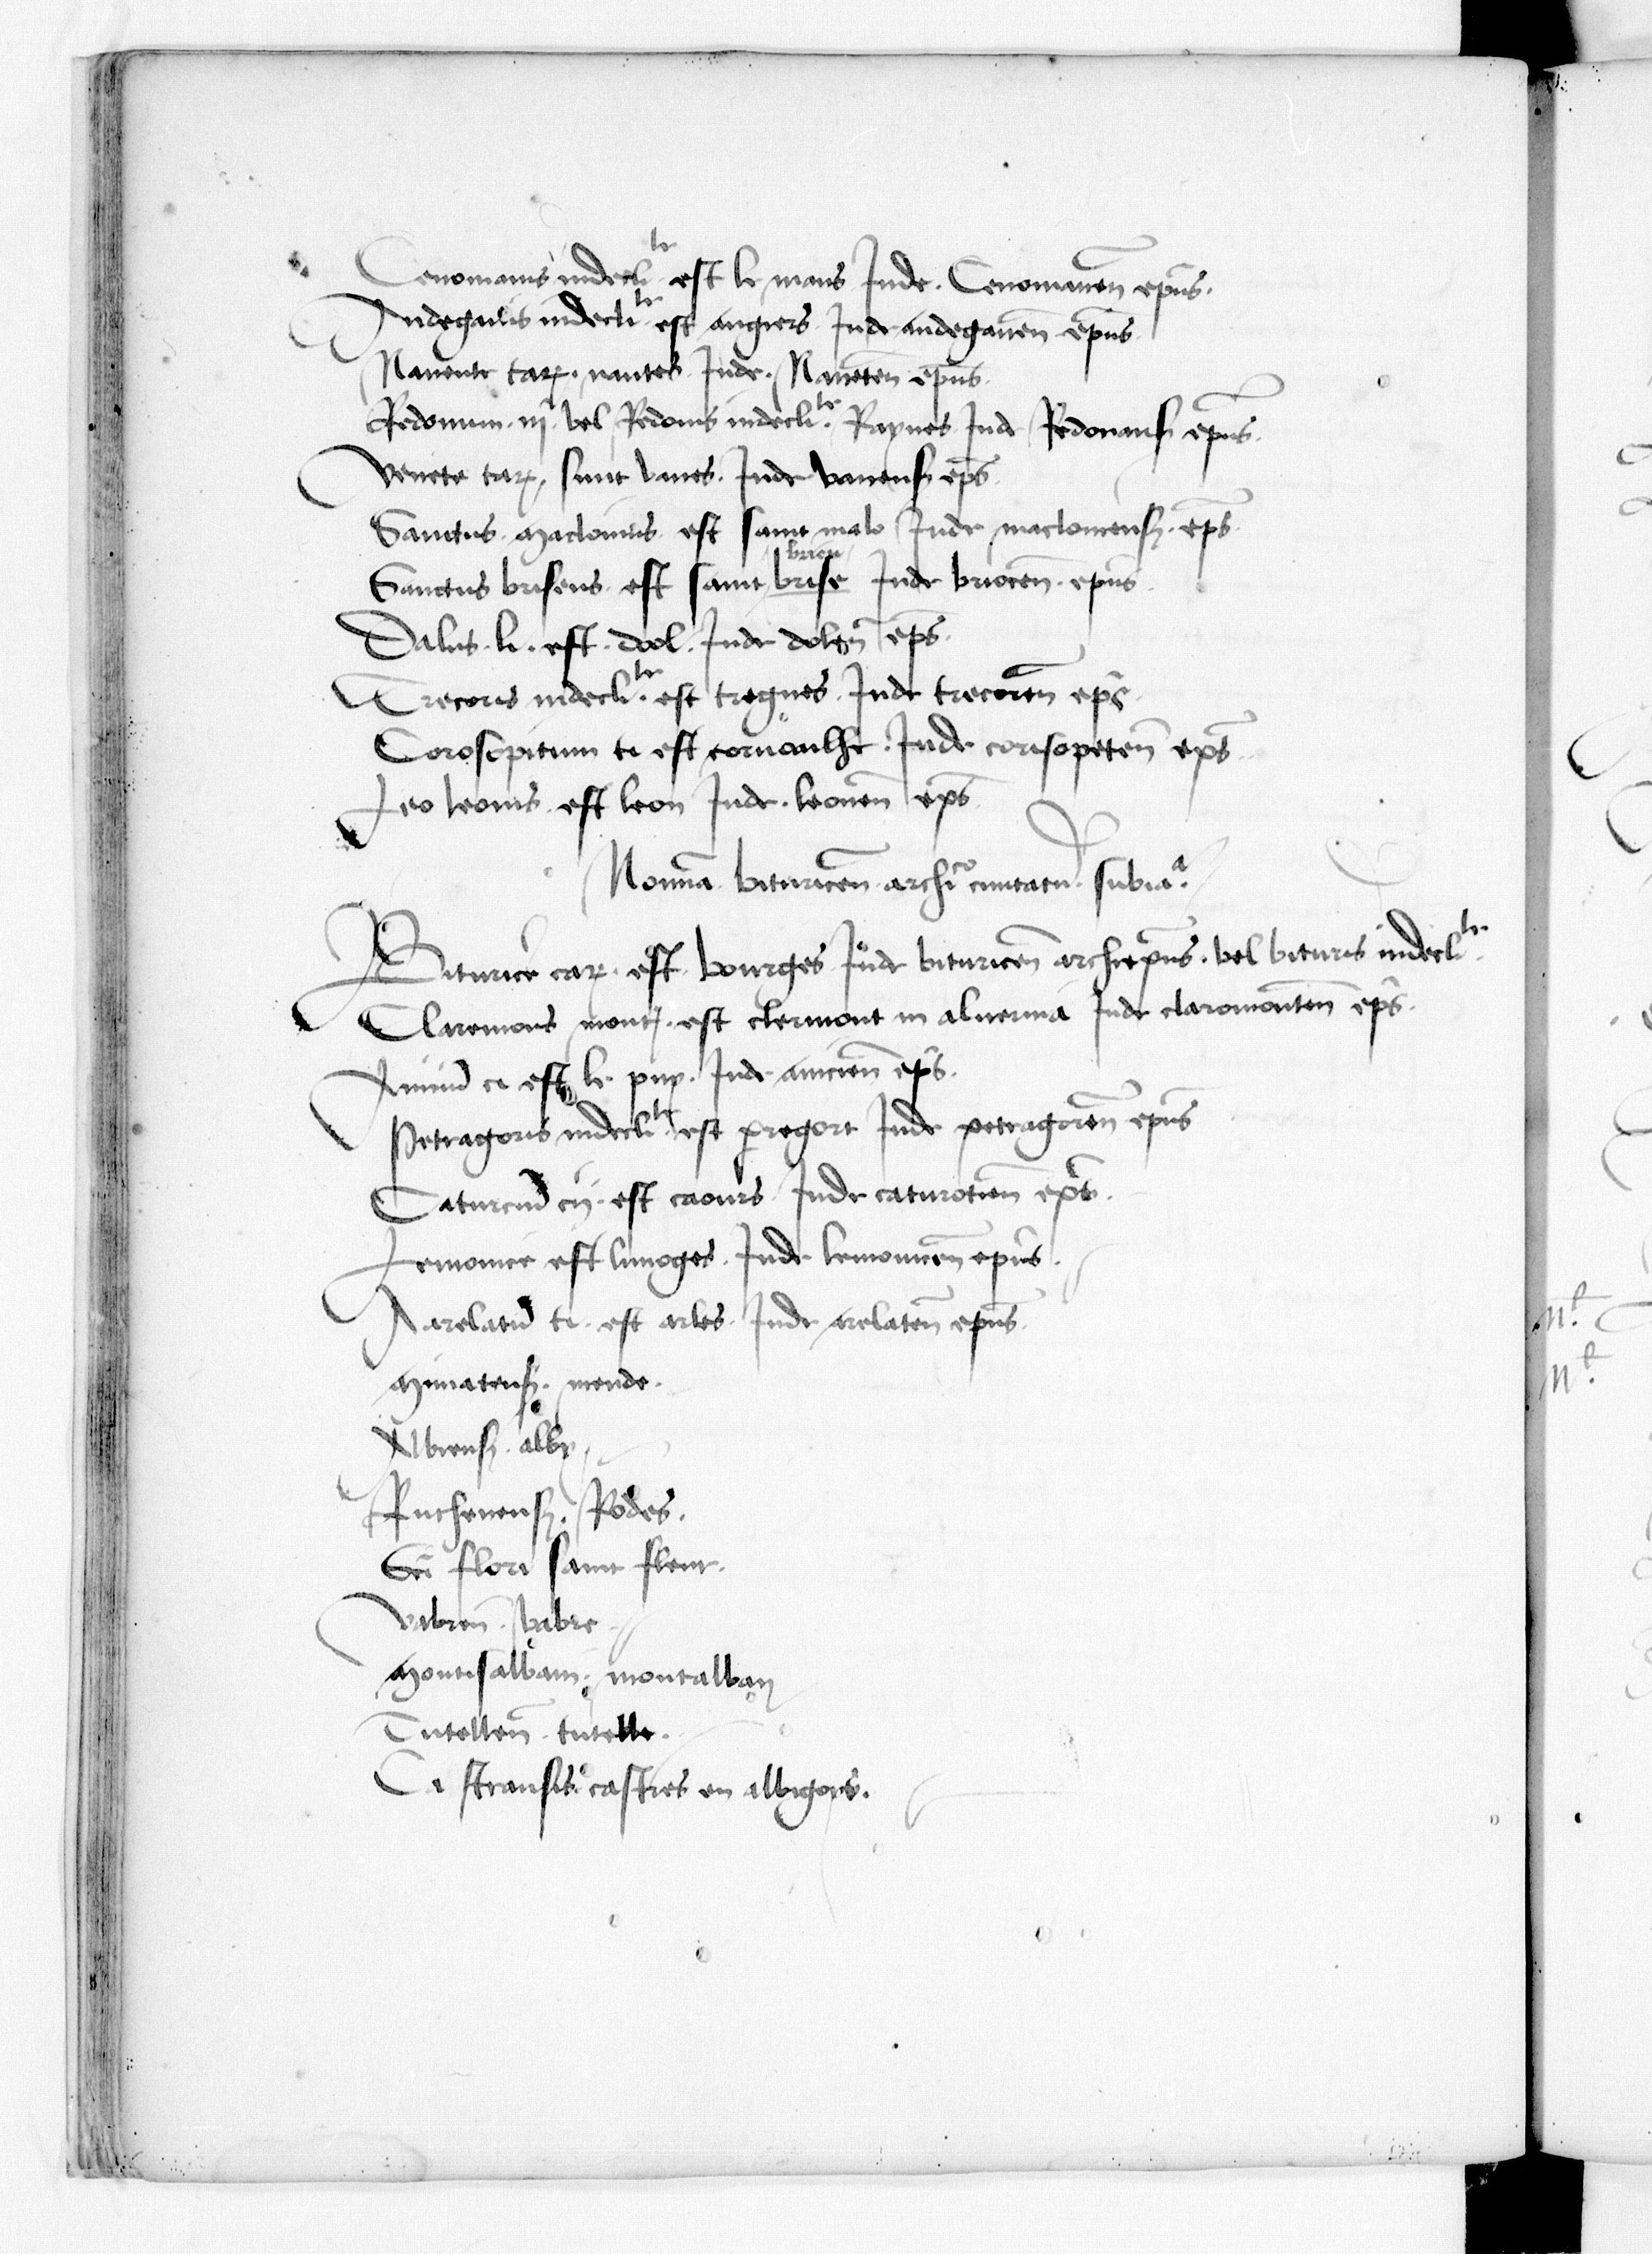 Cenomanis indecli^le est le mans Inde. Cenomanen̄ ep̄us.
Andegauis indecli^le est angiers Inde andegauen̄ ep̄us
Nanente taꝝ. nantes Inde. Naneten̄ ep̄us.
Redonum. nj. vel Redonis indecli^le. Raynes Inde Redonensis ep̄us.
Venete taꝝ. sunt vanes. Inde vanensis ep̄s.
Sanctus. Maclouius est saint malo Inde maclouiensis. ep̄s
brieu
Sanctus briseus est saint brise Inde briocen̄. ep̄us
Dalus. li. est. dol. Inde dolen̄ ep̄s.
Trecoris indecli^le. est tregues. Inde trecoren̄ ep̄s.
Corosopitum ti est cornuaulhe. Inde corisopeten̄ ep̄s.
Leo leonis. est leon Inde. leonen̄ ep̄s
Nomīa bituricen̄. archi^o ciuitatū subia^a.
Bituricē caꝝ. est. bourges Inde bituricen̄ archiep̄us. vel bituris indecli^le.
Claremons montis. est clermont in aluernia Inde claromonten̄ ep̄s.
Aniciū ci est le puy. Inde anicien̄ ep̄s.
Petragoris indecli^le est ꝑregort Inde petragoren̄ ep̄us
Caturciū cij. est caours Inde caturcien̄ ep̄s.
Lemonice est limoges. Inde lemouicen̄ ep̄us.
Aarelatū ti. est arles. Inde arelaten̄ ep̄us.
Mimatensis. mende.
Albiensis. alby.
Ruthenensis. Rodes.
Sc̄i flori saint flour.
Vabren̄. vabre
Montisalbani. montalban
Tutellen̄. tutelle.
Castransis. castres en albigoys.